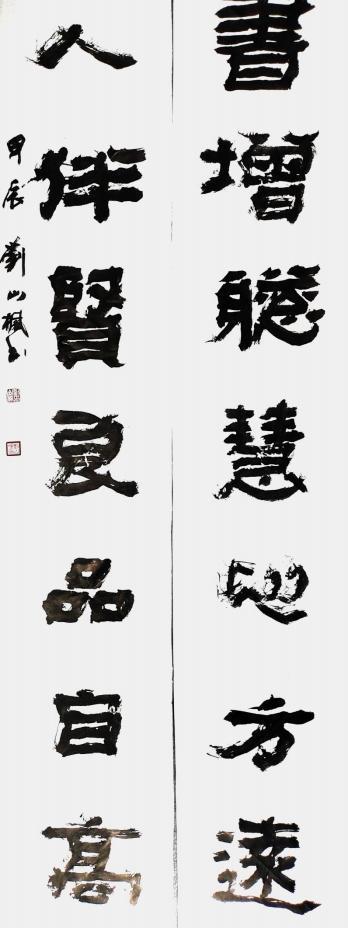 書增聰慧心方遠
人伴賢良品自高
甲辰 劉山